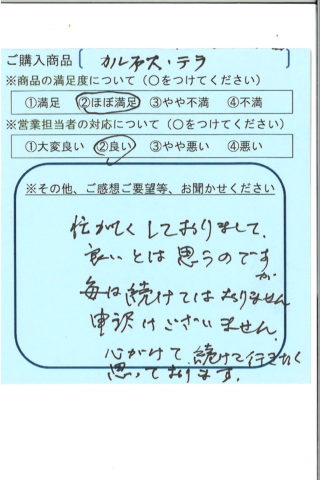 ご購入商品 カルネス・テラ
※商品の満足度について(○をつけてください)
①満足 ②ほぼ満足 ③やや不満 ④不満
※営業担当者の対応について(○をつけてください)
①大変良い ②良い ③やや悪い ④悪い
※その他、ご感想ご要望等、お聞かせください
忙がしくしておりまして、
良いとは思うのですが
毎日続けてはおりません
申訳けございません。
心がけて続けて行きたく
思っております。